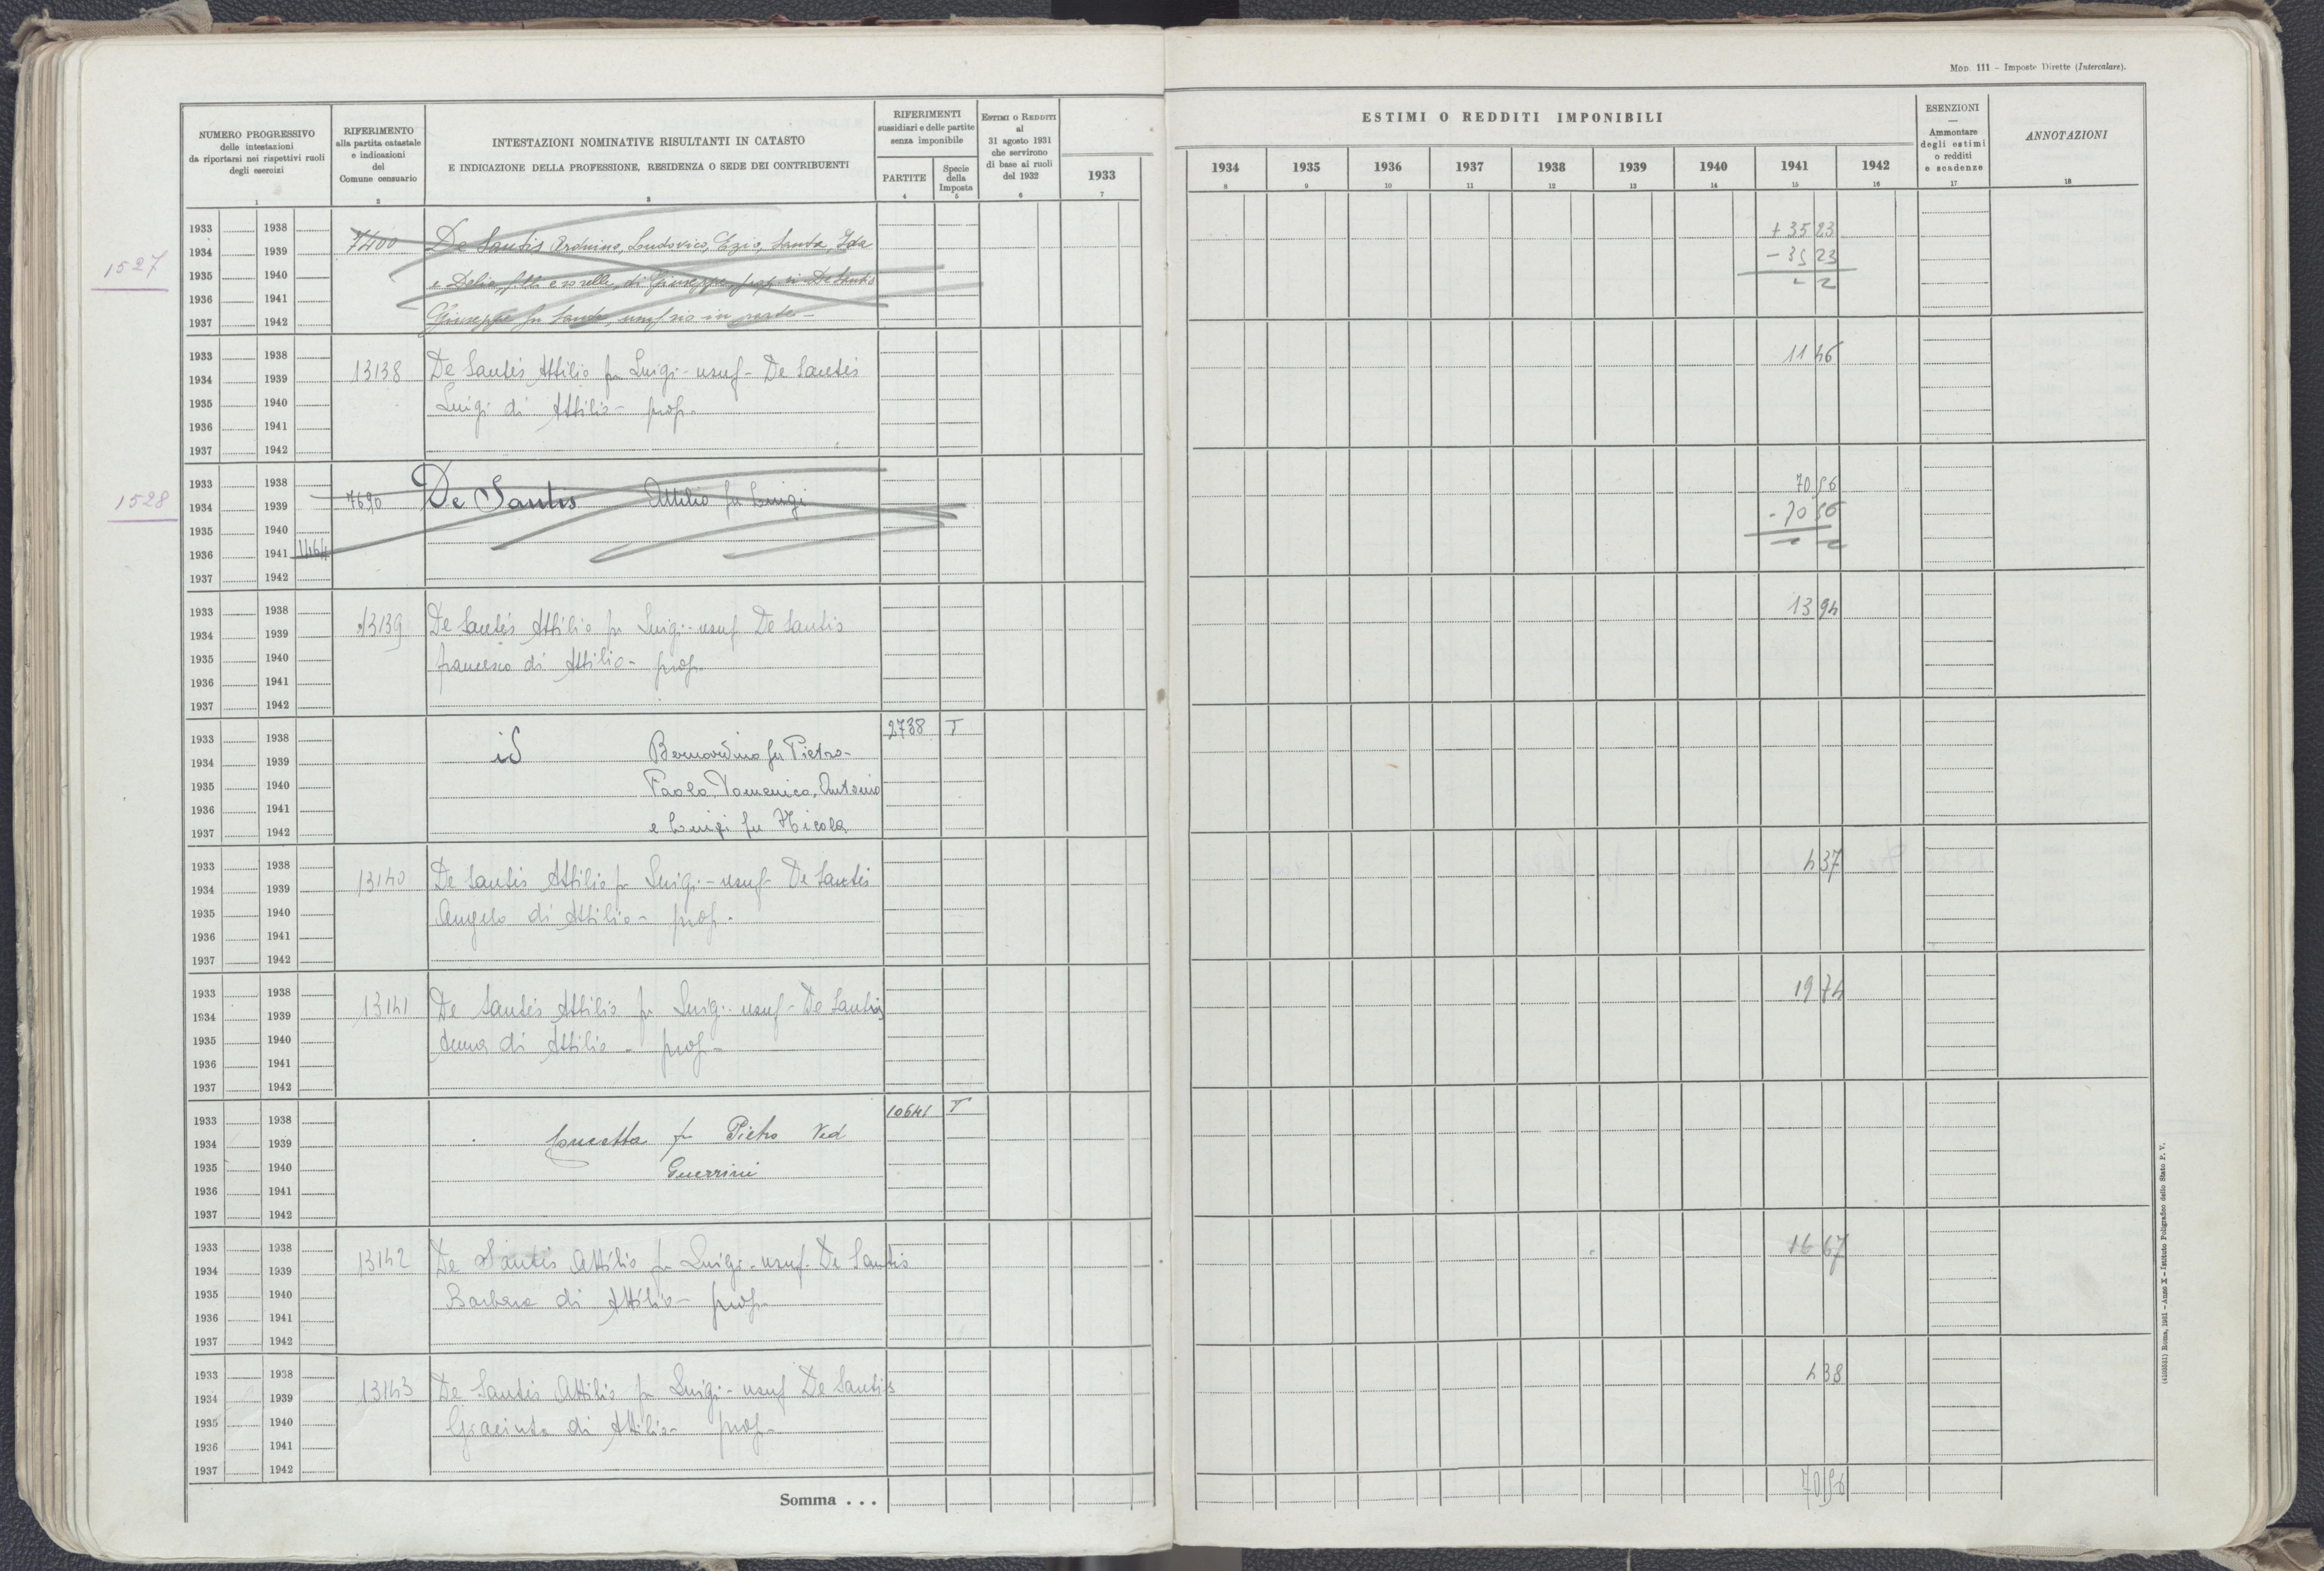 MOD. 111 – Imposte Dirette (Intercalare).
NUMERO PROGRESSIVO
delle intestazioni
da riportarsi nei rispettivi ruoli
degli esercizi
1
RIFERIMENTO
alla partita catastale
e indicazioni
del
Comune censuario
2
INTESTAZIONI NOMINATIVE RISULTANTI IN CATASTO
E INDICAZIONE DELLA PROFESSIONE, RESIDENZA O SEDE DEI CONTRIBUENTI
3
RIFERIMENTI
sussidiari e delle partite
senza imponibile
PARTITE
4
Specie
della
Imposta
5
ESTIMI O REDDITI
al
31 agosto 1931
che servirono
di base ai ruoli
del 1932
6
1933
7
ESTIMI O REDDITI IMPONIBILI
1934 1935 1936 1937 1938 1939 1940 1941 1942
8 9 10 11 12 13 14 15 16
ESENZIONI
—
Ammontare
degli estimi
o redditi
e scadenze
17
ANNOTAZIONI
18
1933 1938 + 35 23
1527 1934 1939 7400 De Santis Arduino, Lodovico, Ezio, Santa, Ida
- 35 23
1935 1940 e Delia, f.lli e sorelle, di Giuseppe, propr. in De Santis
1936 1941
1937 1942 Giuseppe fu Santo, usuf rio in parte –
1933 1938 11 46
1934 1939 13138 De Santis Attilio fu Luigi - usuf - De Santis
1935 1940 Luigi di Attilio - prop.
1936 1941
1937 1942
1933 1938 70 56
1528 1934 1939 7690 De Santis Attilio fu Luigi
- 70 56
1935 1940
1936 1941 1464
1937 1942
1933 1938 13 94
1934 1939 13139 De Santis Attilio fu Luigi - usuf De Santis
1935 1940 Francesco di Attilio - prop.
1936 1941
1937 1942
2738 T
1933 1938 id Bernardino fu Pietro -
1934 1939
1935 1940 Paolo, Domenico, Antonio
1936 1941
1937 1942 e Luigi fu Nicola
1933 1938 4 37
1934 1939 13140 De Santis Attilio fu Luigi - usuf - De Santis
1935 1940 Angelo di Attilio - prop.
1936 1941
1937 1942
1933 1938 19 74
1934 1939 13141 De Santis Attilio fu Luigi - usuf - De Santis
1935 1940 Anna di Attilio - prop -
1936 1941
1937 1942
10641 T
1933 1938
1934 1939 Concetta fu Pietro Ved
1935 1940 Guerrini
1936 1941
1937 1942
1933 1938 16 67
1934 1939 13142 De Santis Attilio fu Luigi - usuf. De Santis
1935 1940 Barbara di Attilio - prop -
1936 1941
1937 1942
1933 1938 4 38
1934 1939 13143 De Santis Attilio fu Luigi - usuf De Santis
1935 1940 Giacinta di Attilio - prop -
1936 1941
1937 1942
Somma . . . 70 56
(4103531) Roma, 1931 – Anno X – Istituto Poligrafico dello Stato P. V.